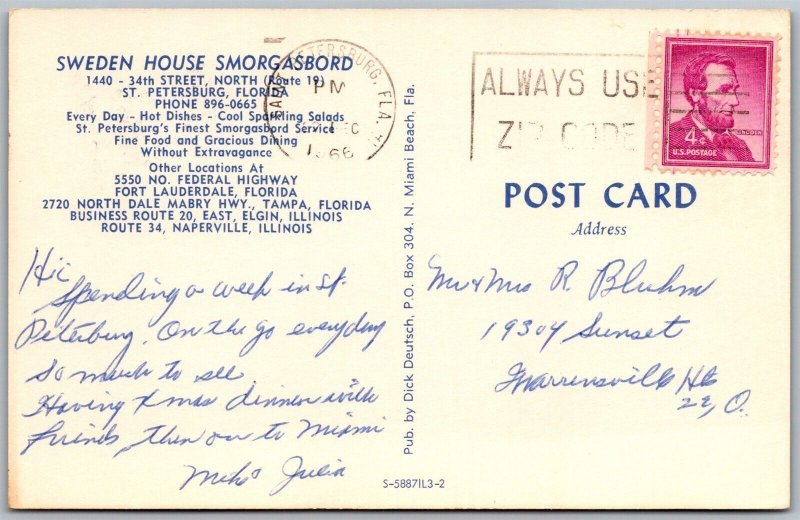 SWEDEN HOUSE SMORGASBORD
1440 - 34th STREET, NORTH (Route 19)
ST. PETERSBURG, FLORIDA
PHONE 896-0665
Every Day - Hot Dishes - Cool Sparkling Salads
St. Petersburg's Finest Smorgasbord Service
Fine Food and Gracious Dining
Without Extravagance
Other Locations At
5550 NO. FEDERAL HIGHWAY
FORT LAUDERDALE, FLORIDA
2720 NORTH DALE MABRY HWY., TAMPA, FLORIDA
BUSINESS ROUTE 20, EAST, ELGIN, ILLINOIS
ROUTE 34, NAPERVILLE, ILLINOIS
Hi
Spending a week in St.
Peterburg. On the go everyday
So much to see
Having Xmas dinner with
friends, then on to Miami
Mike Julia
Pub. by Dick Deutsch, P.O. Box 304, N. Miami Beach, Fla.
SAINT PETERSBURG, FLA.
PM
DEC
1966
ALWAYS USE
ZIP CODE
LINCOLN
4¢
U.S. POSTAGE
POST CARD
Address
Mr & Mrs R. Bluhm
19304 Sunset
Warrensville Hts
22, O.
S-58871L3-2